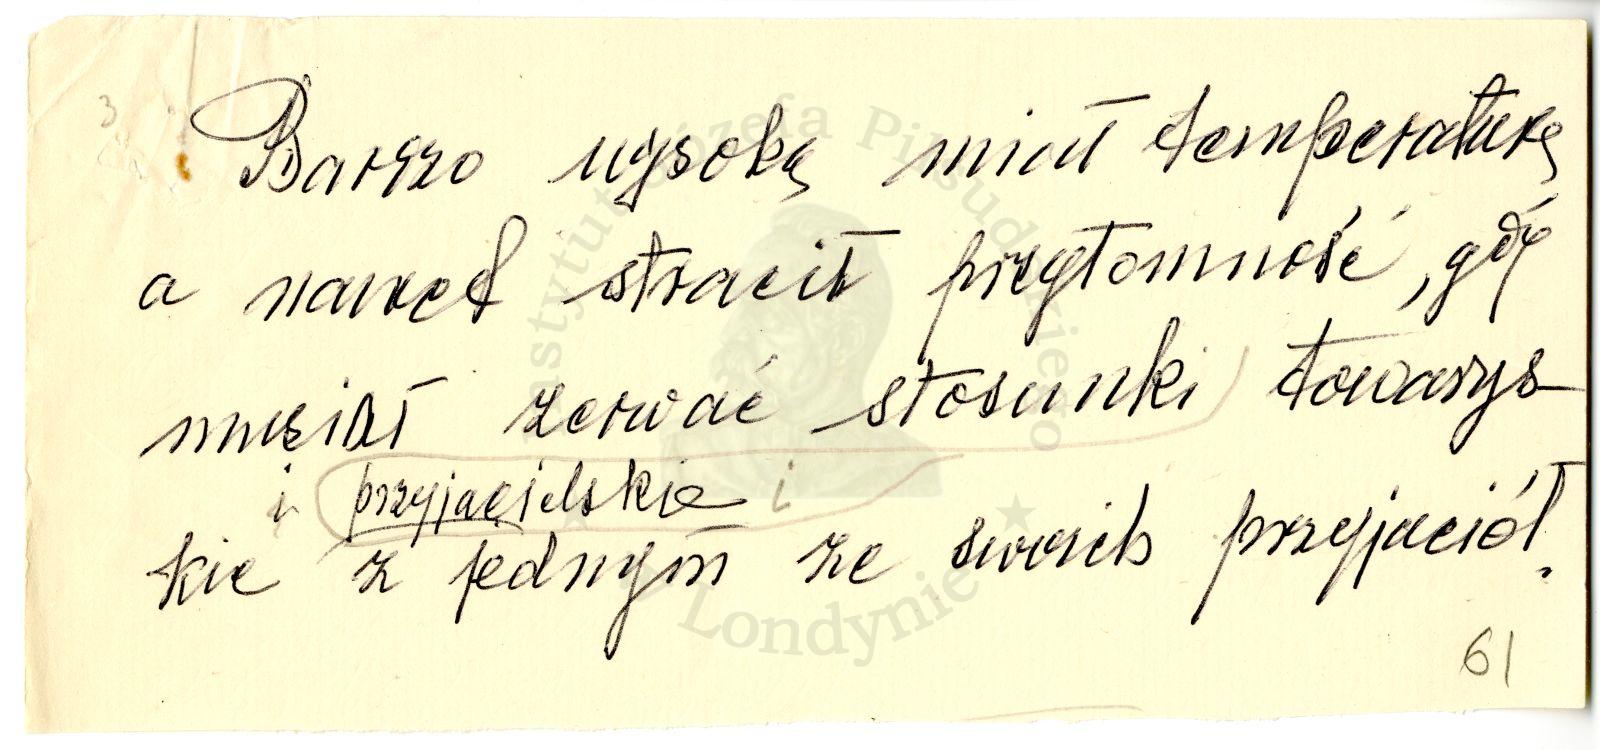 3
Bardzo wysoką miał temperaturę
a nawet stracił przytomność, gdy
musiał zerwać stosunki towarzys
i przyjacielskie i
kie z jednym ze swoich przyjaciół.
61
Instytut Józefa Piłsudskiego
w Londynie